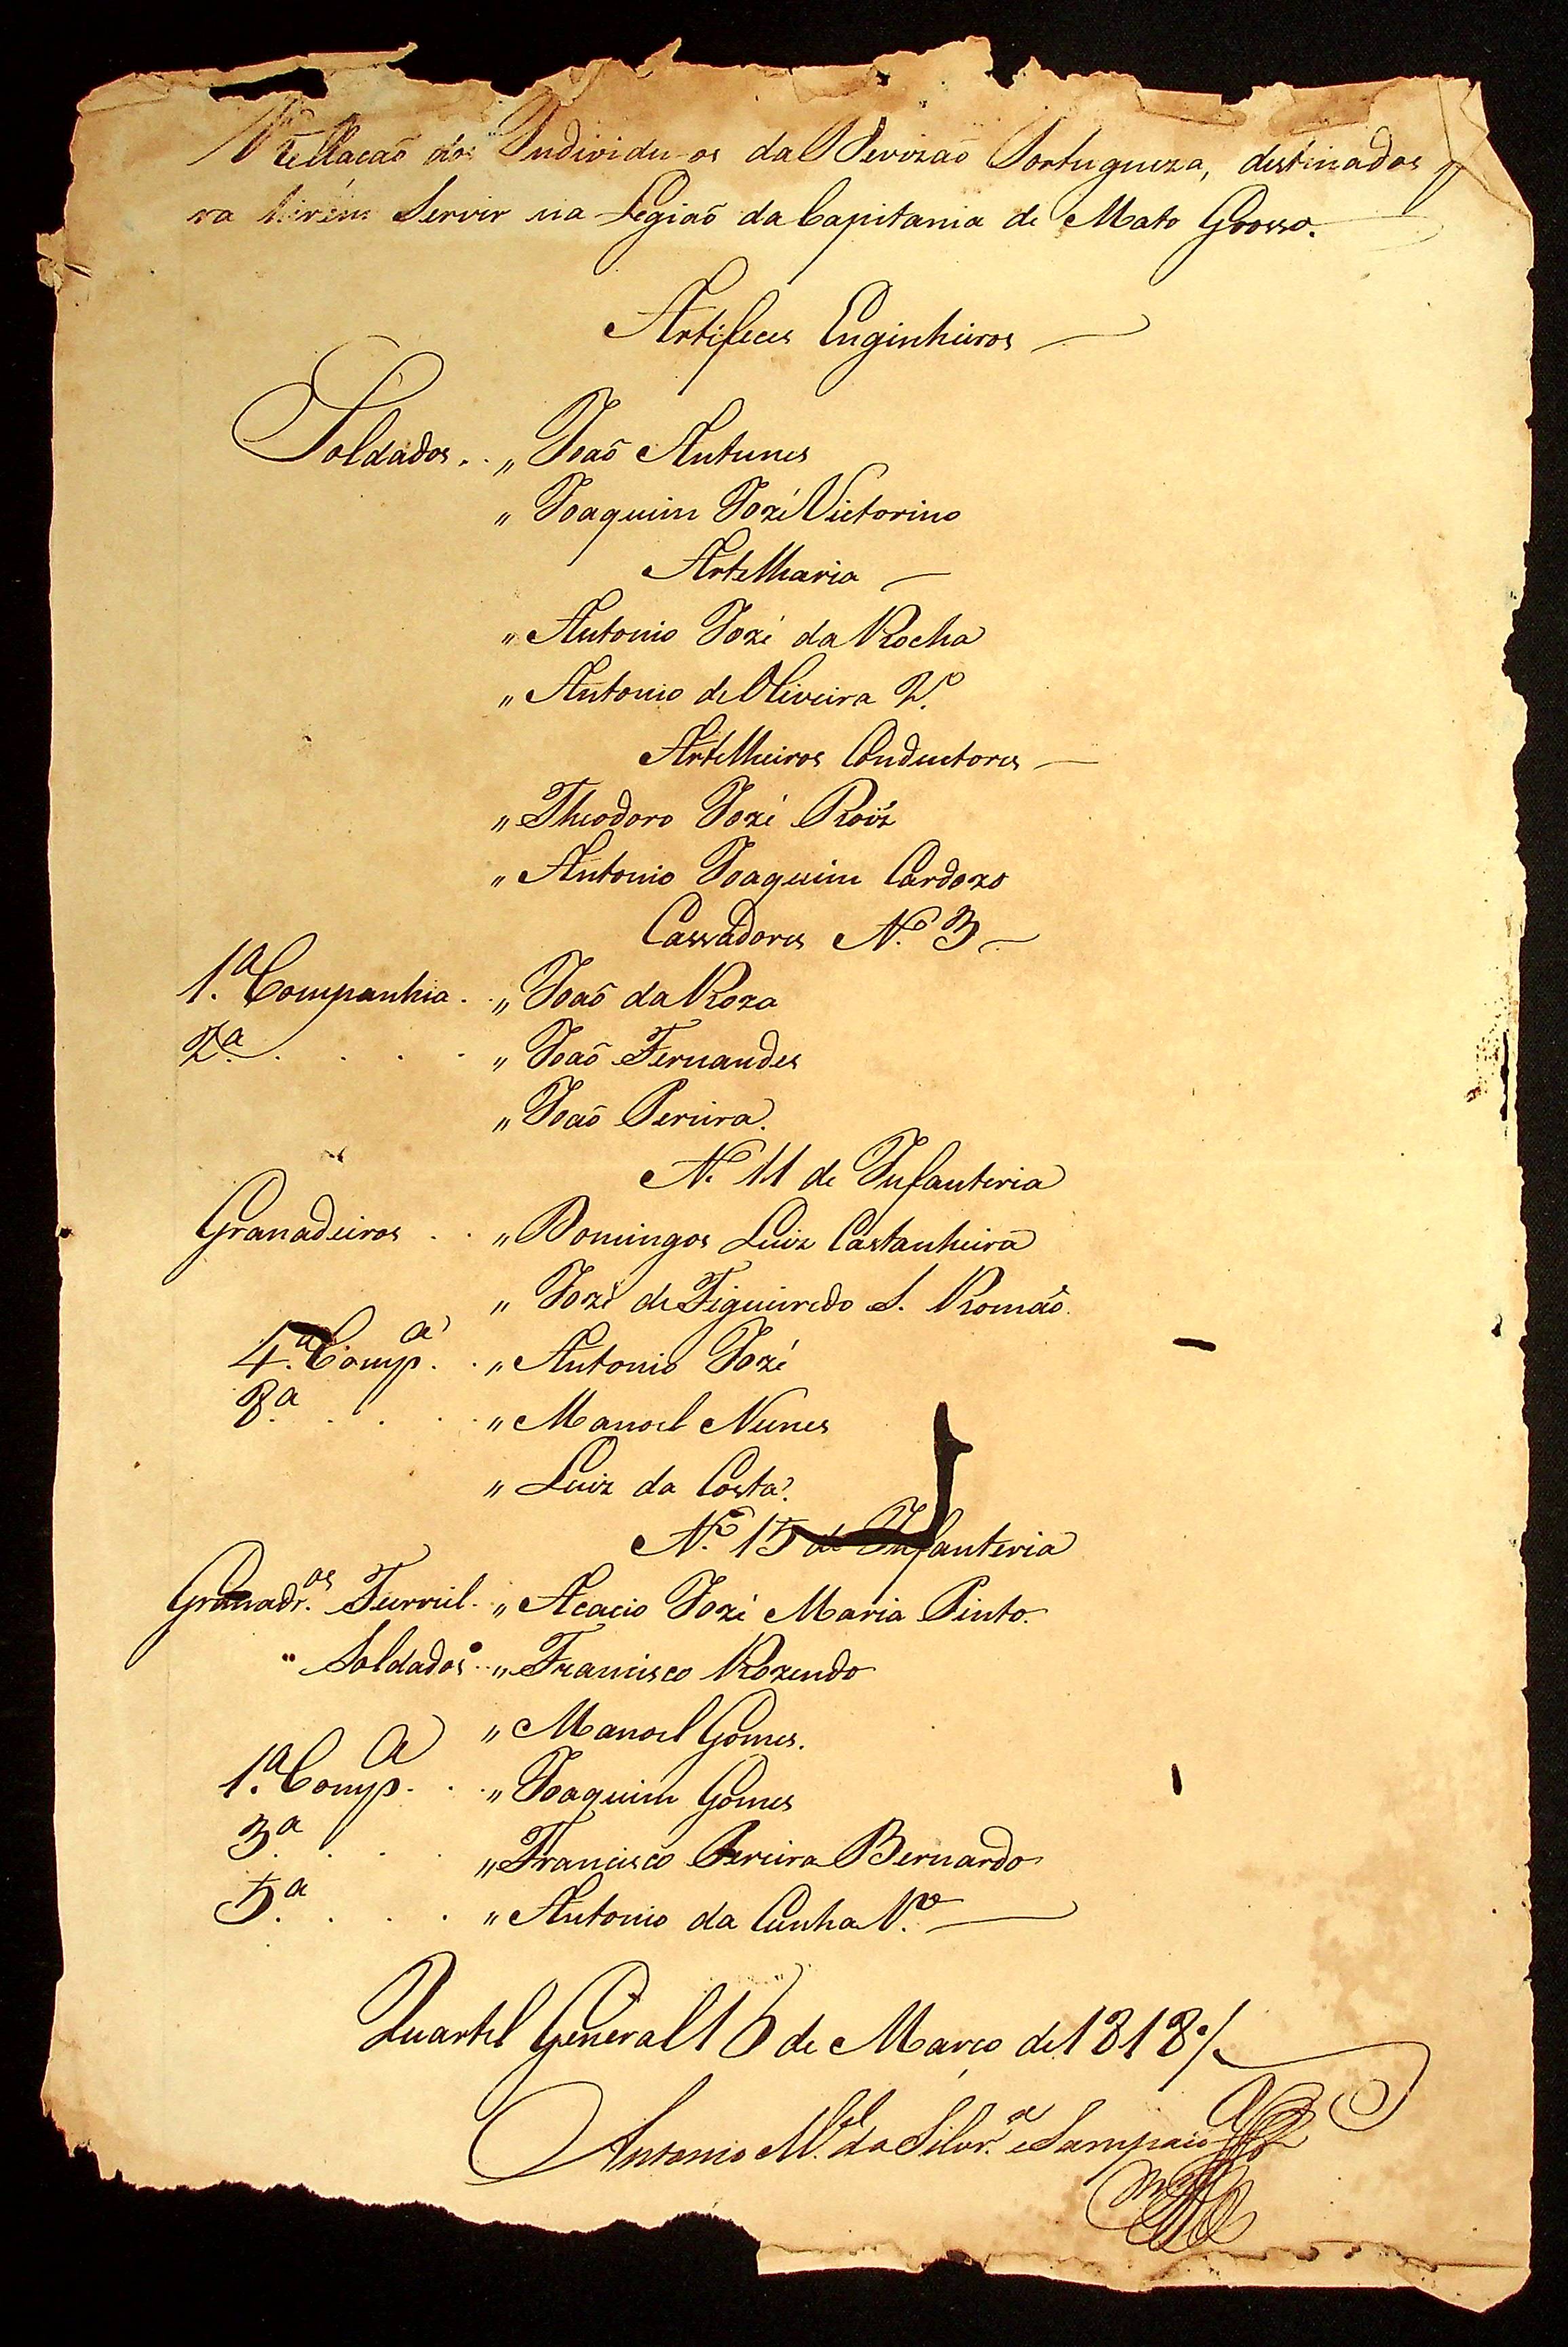 Rellação dos Individuos da Devizaõ Portugueza, destinados p
ra hirem Servir na Legiaõ da Capitania de Mato Grosso.
Artifeces Enginheiros
Soldados . . „ Joaõ Antunes
„ Joaquim Jozé Victorino
Artelharia
„ Antonio Jozé da Rocha
„ Antonio de Oliveira 2.º
Artelheiros Conductores
„ Theodoro Jozé Roiz
„ Antonio Joaquim Cardozo
Cassadores N.º 3
1.ª Companhia . . „ Joaõ da Roza
2.ª . . . . „ Joaõ Fernandes
„ Joaõ Pereira.
N.º 11 de Infanteria
Granadeiros . . „ Domingos Luiz Castanheira
„ Jozé de Figueiredo S. Romaõ.
4.ª Comp.ª . . „ Antonio Jozé
8.ª . . . . „ Manoel Nunes
„ Luiz da Costa.
N.º 15 de Infanteria
Granadr.os Furriel . „ Acacio Jozé Maria Pinto.
„ Soldados . . „ Francisco Rozendo
„ Manoel Gomes.
1.ª Comp.ª . . „ Joaquim Gomes
3.ª . . . . „ Francisco Pereira Bernardo
5.ª . . . . „ Antonio da Cunha V.º
Quartel General 16 de Março de 1818 ./.
Antonio M.el da Silvr.ª e Sampaio